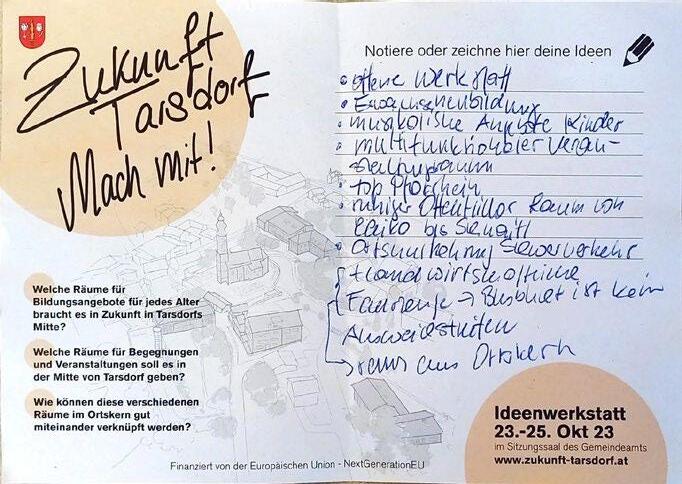 Zukunft
Tarsdorf
Mach mit!
Welche Räume für
Bildungsangebote für jedes Alter
braucht es in Zukunft in Tarsdorfs
Mitte?
Welche Räume für Begegnungen
und Veranstaltungen soll es in
der Mitte von Tarsdorf geben?
Wie können diese verschiedenen
Räume im Ortskern gut
miteinander verknüpft werden?
Notiere oder zeichne hier deine Ideen
offene Werkstatt
Erwachsenenbildung
musikalische Angebote Kinder
multifunktionaler Veran-
staltungsraum
top Pfarrheim
ruhiger öffentlicher Raum von
bis
Ortsumfahrung Schwerverkehr
+ landwirtschaftliche
Fahrzeuge → ist kein
raus aus Ortskern
Ideenwerkstatt
23.-25. Okt 23
im Sitzungssaal des Gemeindeamts
www.zukunft-tarsdorf.at
Finanziert von der Europäischen Union - NextGenerationEU